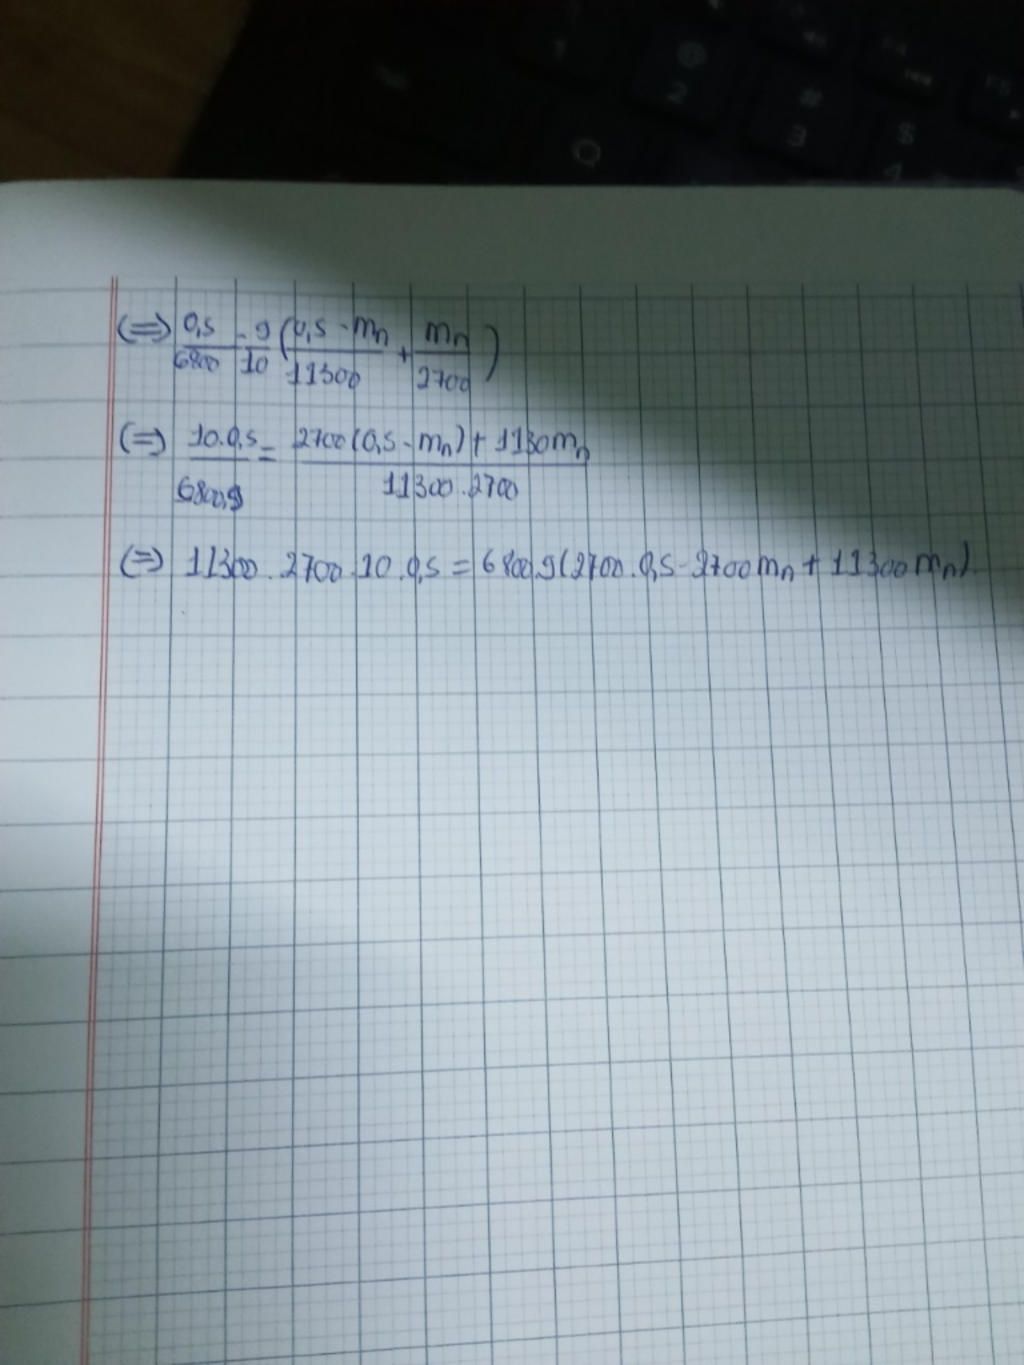 1
@
2
#
3
$
4
(=) 0,5/6800 = 9/10 (0,5 - mₙ/11300 + mₙ/2700)
(=) 10.0,5/6800.9 = 2700(0,5 - mₙ) + 1130mₙ/11300.2700
(=) 11300.2700.10.0,5 = 6800.9(2700.0,5 - 2700mₙ + 11300mₙ).